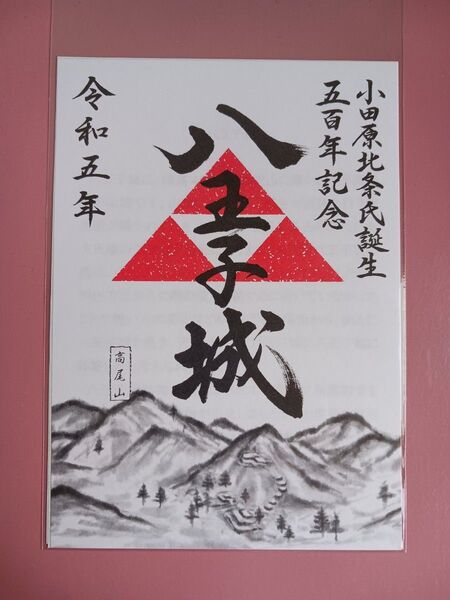 小田原北条氏誕生
五百年記念
八王子城
令和五年
高尾山